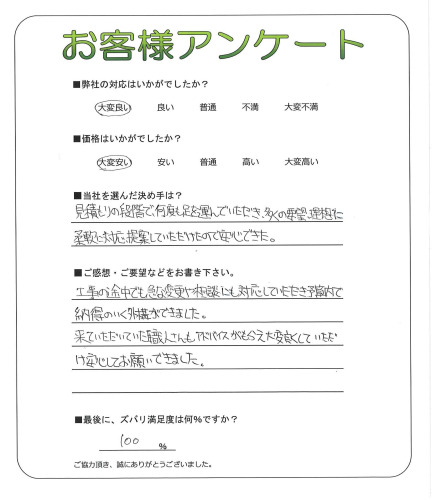 お客様アンケート
■弊社の対応はいかがでしたか？
大変良い 良い 普通 不満 大変不満
■価格はいかがでしたか？
大変安い 安い 普通 高い 大変高い
■当社を選んだ決め手は？
見積もりの段階で何度も足を運んでいただき、多くの要望、理想に
柔軟に対応、提案していただけたので安心できた。
■ご感想・ご要望などをお書き下さい。
工事の途中でも急な変更や相談にも対応していただき予算内で
納得のいく外構ができました。
来ていただいていた職人さんもアドバイスがもらえ大変良くしていただ
け安心してお願いできました。
■最後に、ズバリ満足度は何％ですか？
100 ％
ご協力頂き、誠にありがとうございました。